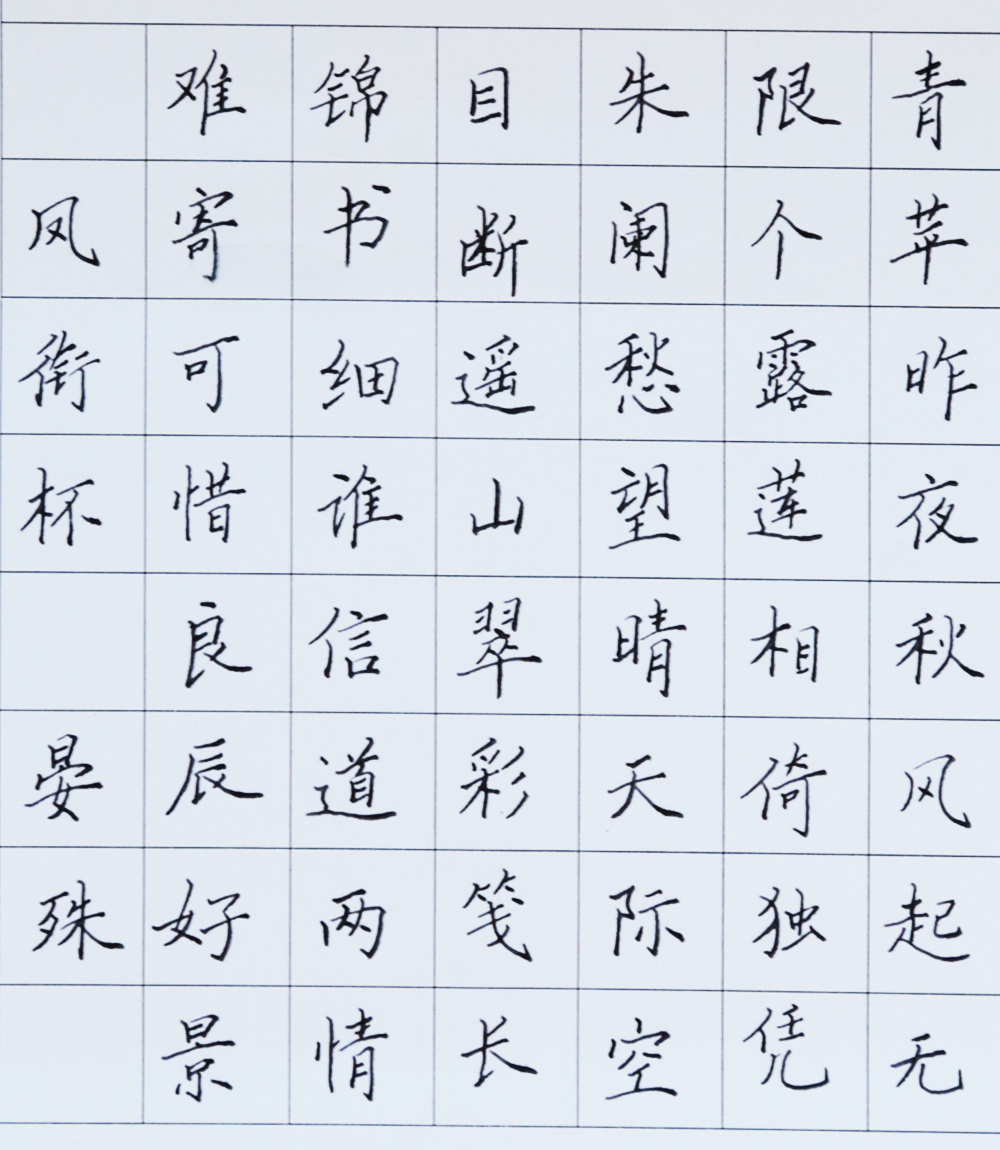 青苹昨夜秋风起无
限个露莲相倚独凭
朱阑愁望晴天际空
目断遥山翠彩笺长
锦书细谁信道两情
难寄可惜良辰好景
凤衔杯 晏殊